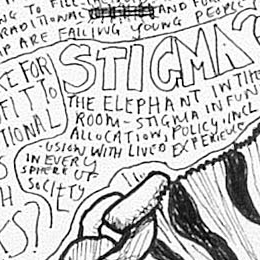 NG TO FILL
TRADITIONAL AND FOR
AP ARE FAILING YOUNG PEOPLE
STIGMA?
KE FOR
FLT TO
TIONAL
THE ELEPHANT IN THE
ROOM - STIGMA IN FUN
ALLOCATION, POLICY, INCL
-USION WITH LIVED EXPERIENCE
IN EVERY
SPHERE OF
SOCIETY
S
H
S?